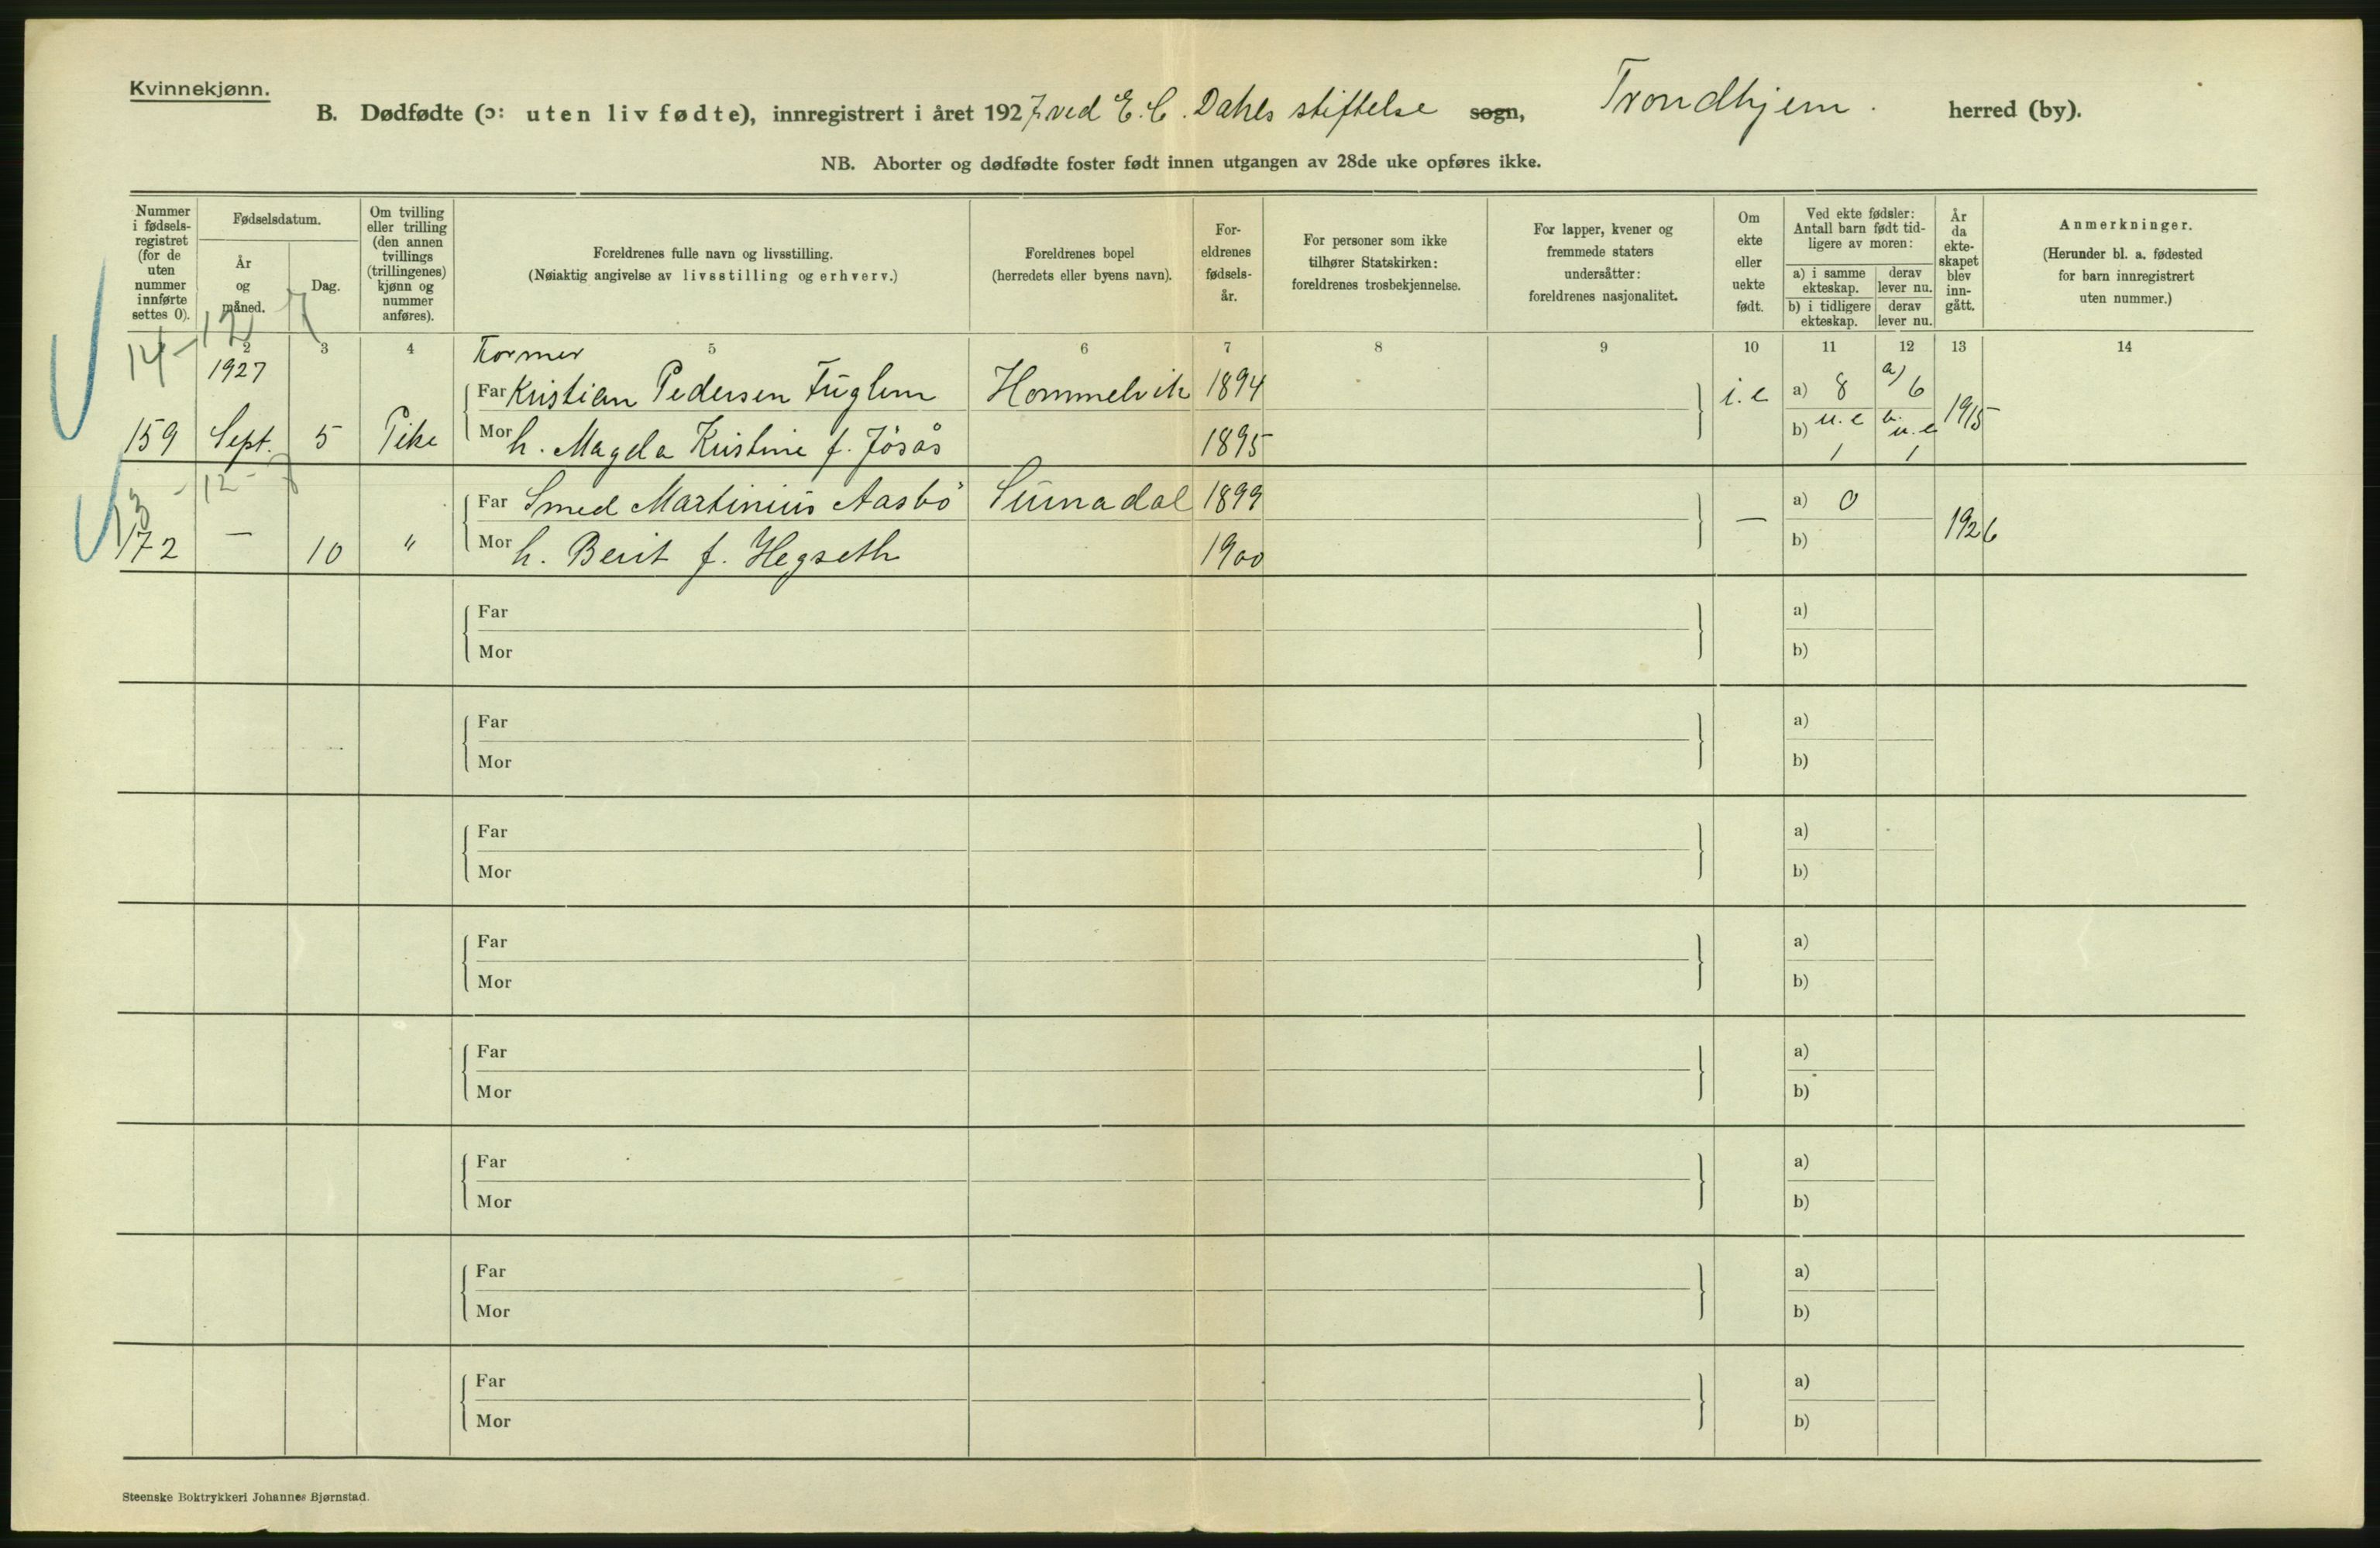 Kvinnekjønn.
B. Dødfødte (ɔ: uten liv fødte), innregistrert i året 1927 ved E. C. Dahls stiftelse sogn, Trondhjem. herred (by).
NB. Aborter og dødfødte foster født innen utgangen av 28de uke opføres ikke.
Nummer i fødsels-registret (for de uten nummer innførte settes 0).
Fødselsdatum.
År og måned.
Dag.
Om tvilling eller trilling (den annen tvillings (trillingenes) kjønn og nummer anføres).
Foreldrenes fulle navn og livsstilling.
(Nøiaktig angivelse av livsstilling og erhverv.)
Foreldrenes bopel
(herredets eller byens navn).
For-eldrenes fødsels-år.
For personer som ikke tilhører Statskirken: foreldrenes trosbekjennelse.
For lapper, kvener og fremmede staters undersåtter: foreldrenes nasjonalitet.
Om ekte eller uekte født.
Ved ekte fødsler: Antall barn født tid-ligere av moren:
a) i samme ekteskap.
derav lever nu.
b) i tidligere ekteskap.
derav lever nu.
År da ekte-skapet blev inn-gått.
Anmerkninger.
(Herunder bl. a. fødested for barn innregistrert uten nummer.)
14-12 7
2 3 4 5 6 7 8 9 10 11 12 13 14
1927 Former
Far Kristian Pedersen Fuglem Hommelvik 1894 i. e a) 8 a) 6 1915
159 Sept. 5 Pike Mor h. Magda Kristine f. Jøsås 1895 b) u. e 1 b. u. e 1
13 - 12 - 7
Far Smed Martinius Aasbø Surnadal 1899 — a) 0 1926
172 — 10 " Mor h. Berit f. Hegseth 1900 b)
Far a)
Mor b)
Far a)
Mor b)
Far a)
Mor b)
Far a)
Mor b)
Far a)
Mor b)
Far a)
Mor b)
Far a)
Mor b)
Far a)
Mor b)
Steenske Boktrykkeri Johannes Bjørnstad.